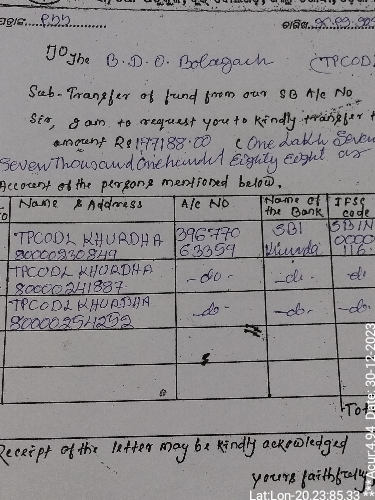 To
The B.D.O. Bolagarh (TPCODL
Sub- Transfer of fund from our SB A/c No
Sir, I am to request you to kindly transfer t
amount Rs 177188.00 (One Lakh Seven
Seven Thousand One hundred Eighty Eight
Account of the persons mentioned below.
Name & Address A/c NO Name of the Bank IFSC code
TPCODL KHURDHA 396770 SBI SBIN
80000230849 63359 Khurda 0000 116
TPCODL KHURDHA -do- -do- -do
80000241887
TPCODL KHURDHA -do- -do- -do-
80000254252
Tot
Receipt of the letter may be kindly acknowledged
yours faithfully
Lat:Lon-20.23:85.33
Acur:4.94 Date: 30-12-2023